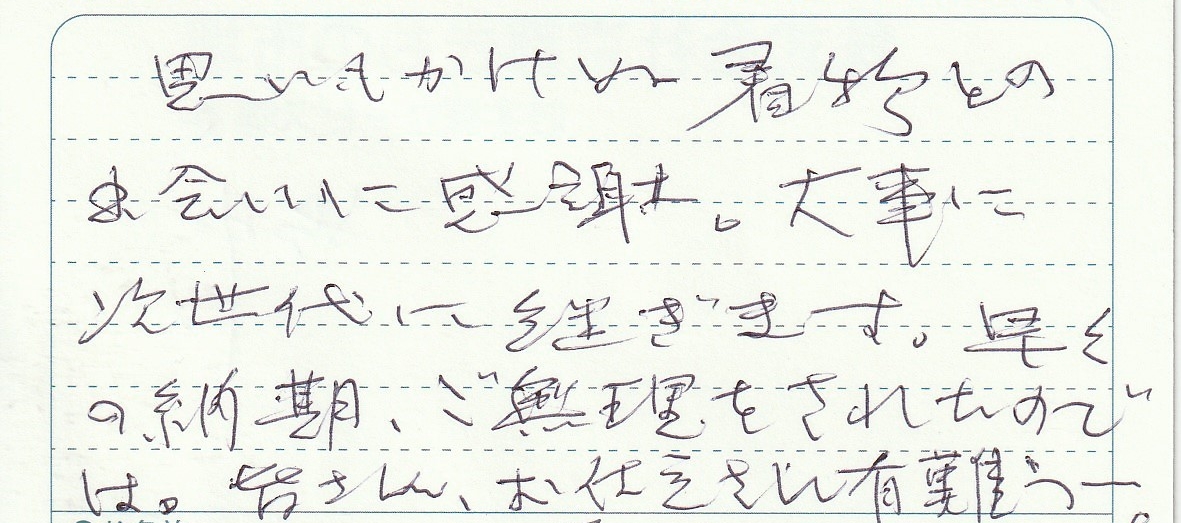 思いもかけぬ着物との
出会いに感謝。大事に
次世代に継ぎます。早く
の納期、ご無理をされたので
は。皆さん、お仕立さん有難う